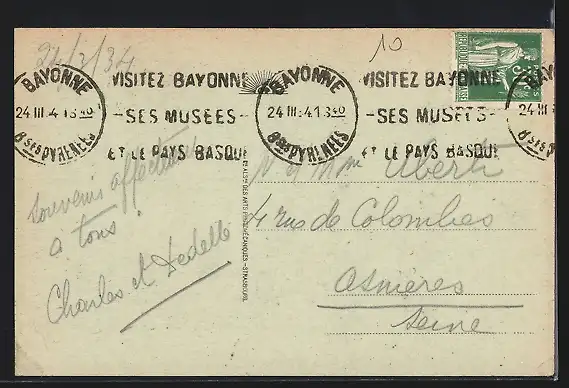 24/3/34
10
BAYONNE
24 III 34 13 40
BSES PYRENEES
VISITEZ BAYONNE
SES MUSÉES
ET LE PAYS BASQUE
BAYONNE
24 III 34 13 40
BSES PYRENEES
VISITEZ BAYONNE
SES MUSÉES
ET LE PAYS BASQUE
Souvenirs affectueux
à tous !
Charles et Dedelle
DES ARTS PHOTOMÉCANIQUES - STRASBOURG
M et Mme Uberti
4 rue de Colombes
Asnières
Seine